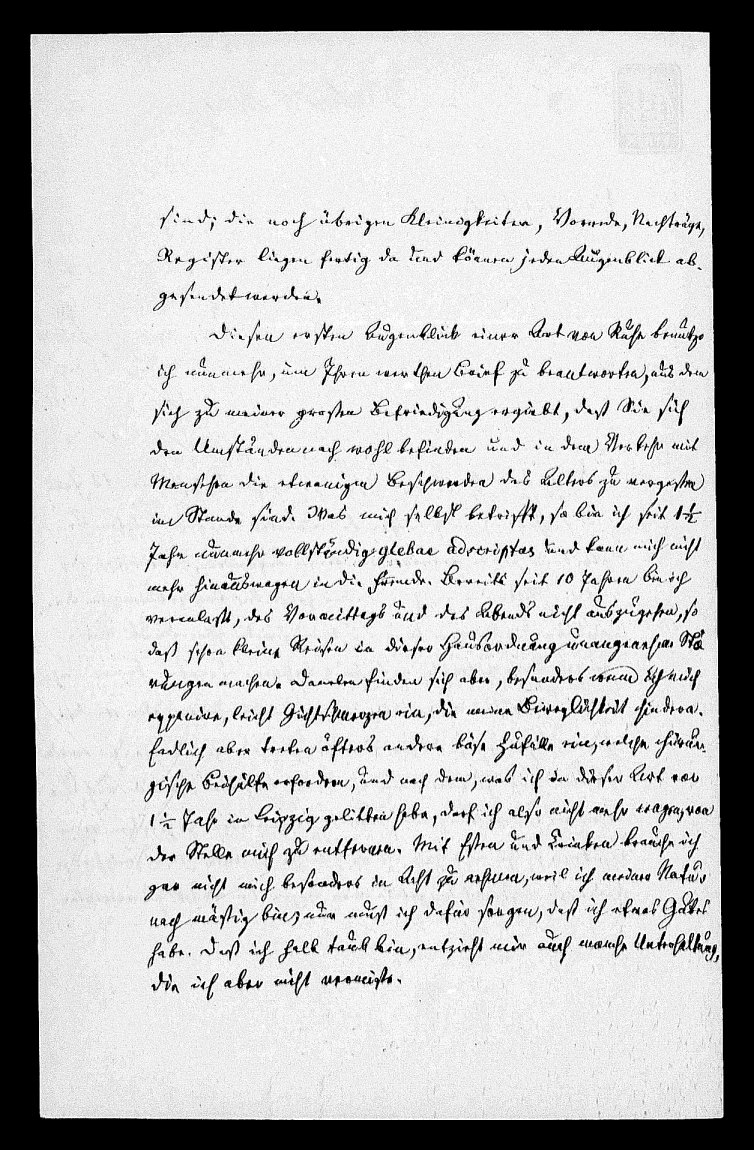 sind; die noch übrigen Kleinigkeiten, Vorrede, Nachträge,
Register liegen fertig da und können jeden Augenblick ab-
gesendet werden.
Diesen ersten Augenblick einer Art von Ruhe benutze
ich nunmehr, um Ihren werthen Brief zu beantworten, aus dem
sich zu meiner grossen Befriedigung ergiebt, daß Sie sich
den Umständen nach wohl befinden und in dem Verkehr mit
Menschen die etwanigen Beschwerden des Alters zu vergessen
im Stande sind. Was mich selbst betrifft, so bin ich seit 1½
Jahr nunmehr vollständig glebae adscriptus und kann mich nicht
mehr hinauswagen in die Fremde. Bereits seit 10 Jahren bin ich
veranlaßt, des Vormittags und des Abends nicht auszugehen, so
daß schon kleine Reisen in dieser Hausordnung unangenehme Stö-
rungen machen. Daneben finden sich aber, besonders wenn ich mich
, leicht Gichtschmerzen ein, die meine Beweglichkeit hindern.
Endlich aber treten öfters andere böse Zufälle ein, welche chirur-
gische Beihülfe erfordern, und nach dem, was ich in dieser Art vor
1½ Jahr in Leipzig gelitten habe, darf ich also nicht mehr wagen, von
der Stelle mich zu entfernen. Mit Essen und Trinken brauche ich
gar nicht mich besonders in Acht zu nehmen, weil ich meiner Natur
nach mäßig bin; nur muß ich dafür sorgen, daß ich etwas Gutes
habe. Daß ich halb taub bin, entzieht mir auch manche Unterhaltung,
die ich aber nicht vermisse.